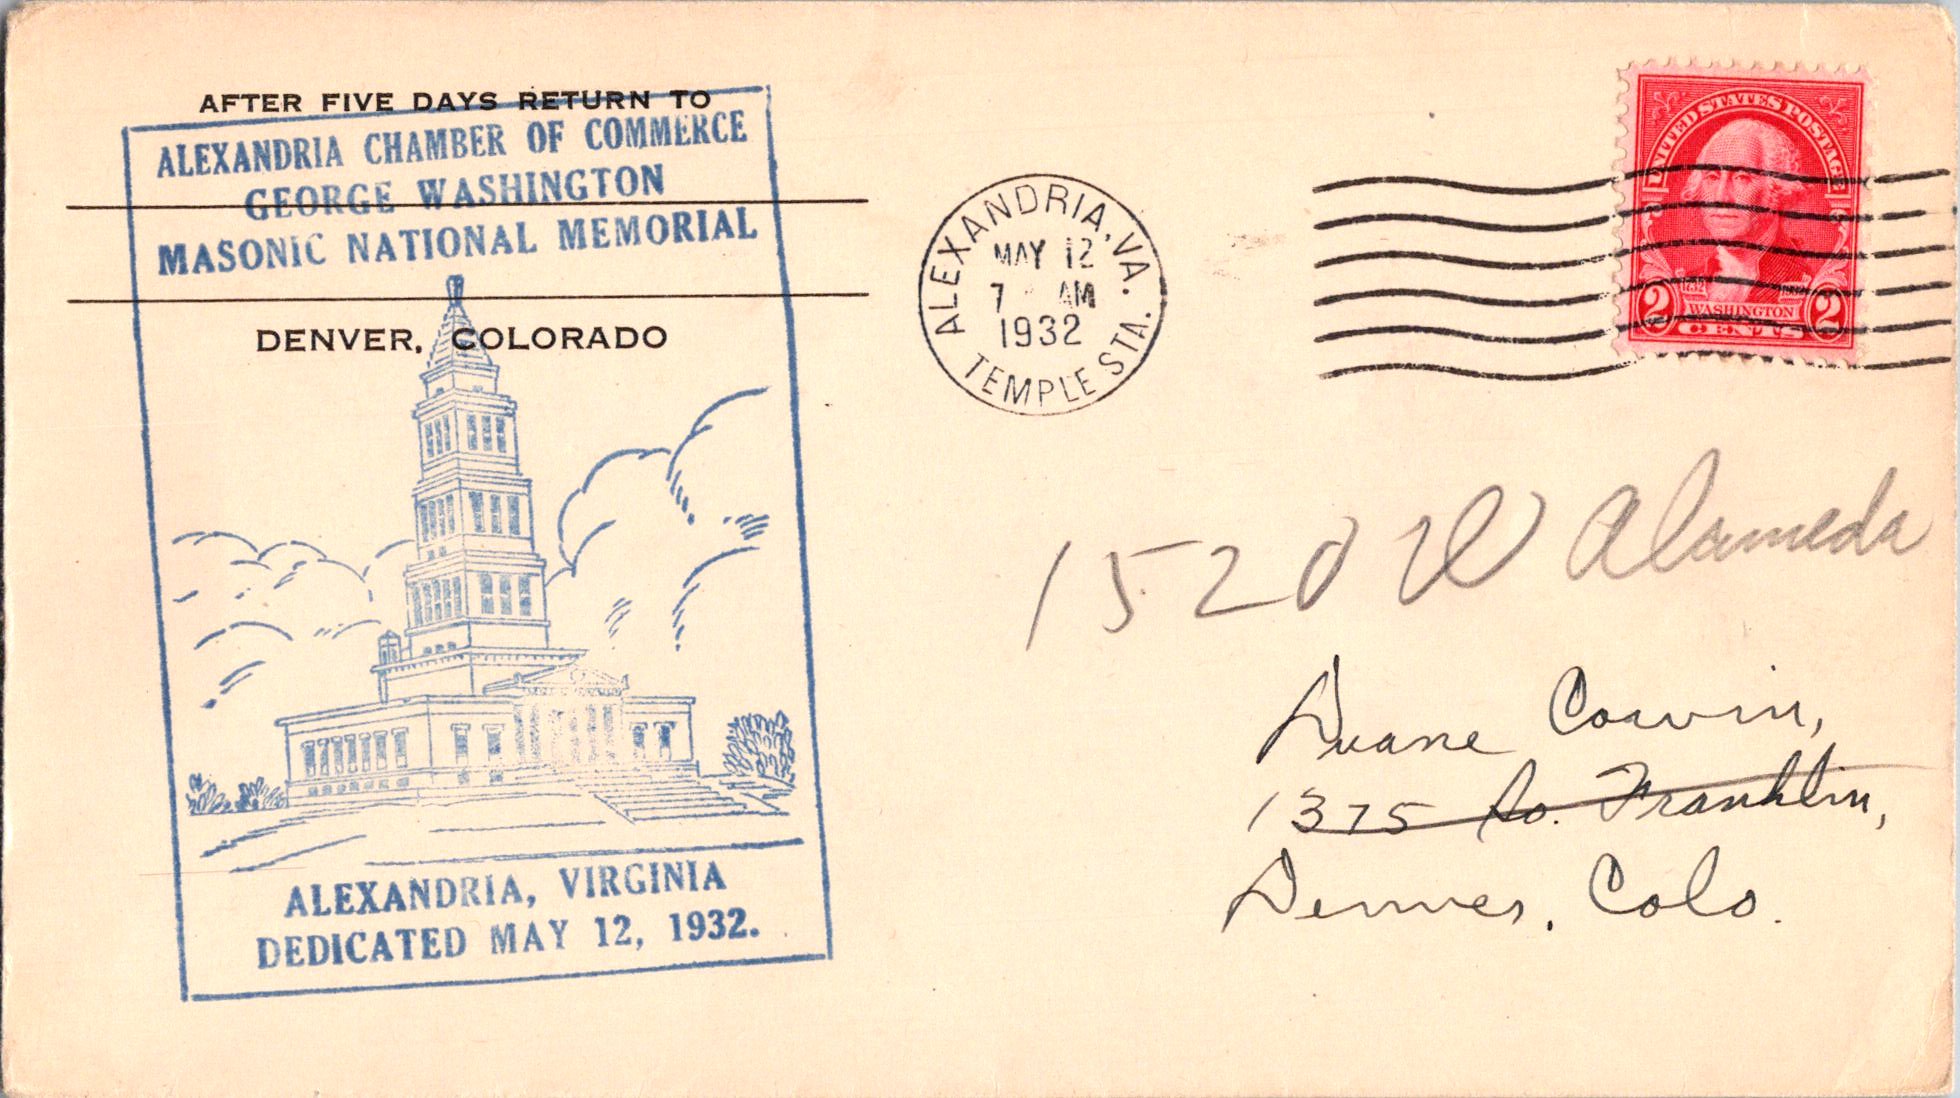 AFTER FIVE DAYS RETURN TO
ALEXANDRIA CHAMBER OF COMMERCE
GEORGE WASHINGTON
MASONIC NATIONAL MEMORIAL
DENVER, COLORADO
ALEXANDRIA, VIRGINIA
DEDICATED MAY 12, 1932.
ALEXANDRIA, VA.
MAY 12
7 AM
1932
TEMPLE STA.
UNITED STATES POSTAGE
1732
2 WASHINGTON 2
CENTS
1520 W Alameda
Duane Cowin,
1375 So. Franklin,
Denver, Colo.